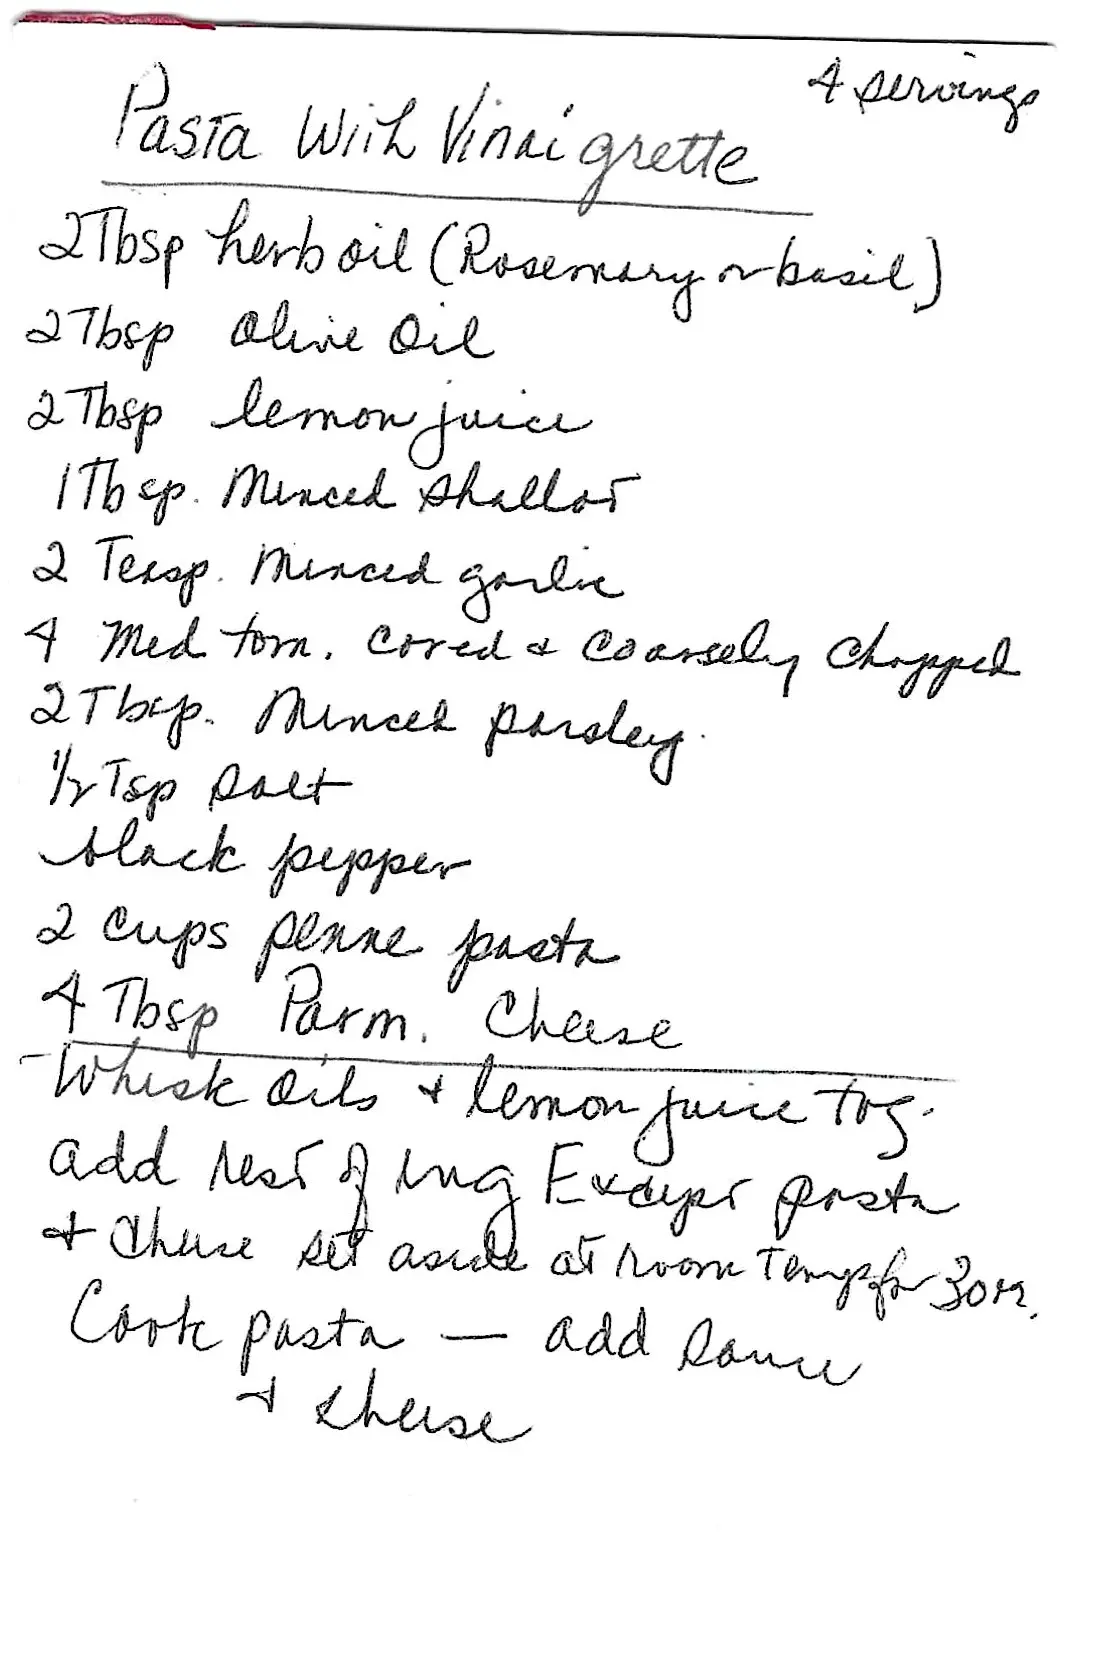 4 servings
Pasta With Vinaigrette
2 Tbsp herb oil (Rosemary or basil)
2 Tbsp Olive Oil
2 Tbsp lemon juice
1 Tbsp. Minced shallot
2 Teasp. Minced garlic
4 Med tom. cored & coarsely chopped
2 Tbsp. Minced parsley.
1/2 Tsp salt
black pepper
2 cups penne pasta
4 Tbsp Parm. Cheese
Whisk oils + lemon juice tog.
add rest of ing Except pasta
+ cheese set aside at room Temp for 30 m.
Cook pasta — add sauce
+ cheese